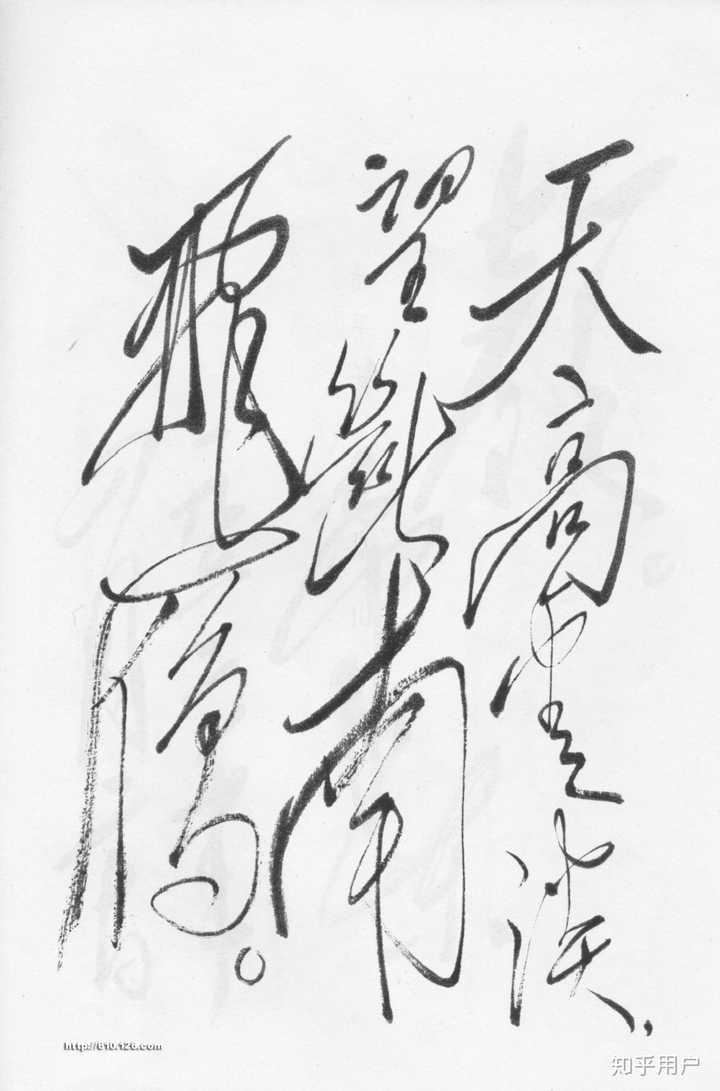 天高雲淡，
望斷南
飛雁。
http://810.126.com
知乎用户